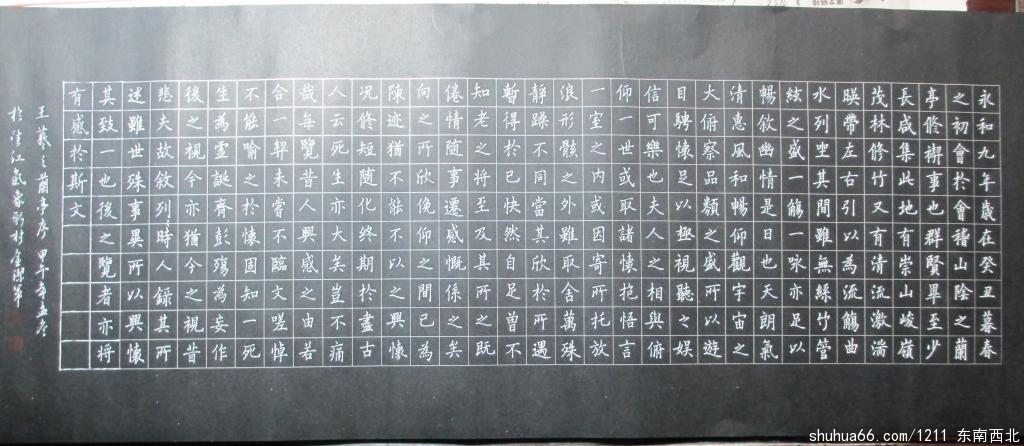 永和九年歲在癸丑暮春
之初會於會稽山陰之蘭
亭修禊事也群賢畢至少
長咸集此地有崇山峻嶺
茂林修竹又有清流激湍
暎帶左右引以為流觴曲
水列坐其間雖無絲竹管
絃之盛一觴一咏亦足以
暢敘幽情是日也天朗氣
清惠風和暢仰觀宇宙之
大俯察品類之盛所以遊
目騁懷足以極視聽之娛
信可樂也夫人之相與俯
仰一世或取諸懷抱悟言
一室之内或因寄所托放
浪形骸之外雖取舍萬殊
靜躁不同當其欣於所遇
暫得於己快然自足曾不
知老之將至及其所之既
倦情随事遷感慨係之矣
向之所欣俛仰之間已為
陳迹猶不能不以之興懷
况修短随化終期於盡古
人云死生亦大矣豈不痛
哉每覽昔人興感之由若
合一契未嘗不臨文嗟悼
不能喻之於懷固知一死
生為虛誕齊彭殤為妄作
後之視今亦猶今之視昔
悲夫故敘列時人錄其所
述雖世殊事異所以興懷
其致一也後之覽者亦將
有感於斯文
王羲之蘭亭序 甲午年孟冬
於浦江氣象新村
shuhua66.com/1211 东南西北